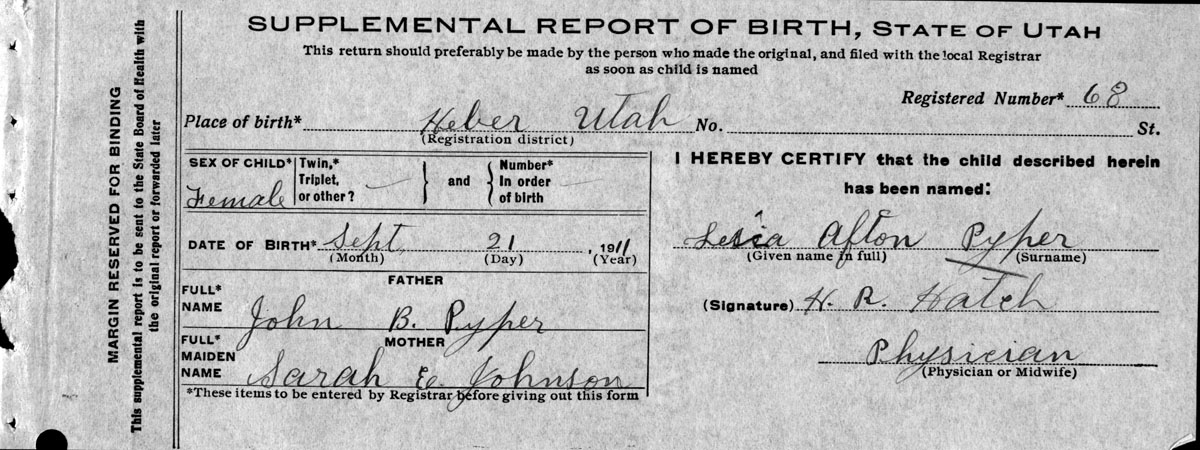 SUPPLEMENTAL REPORT OF BIRTH, STATE OF UTAH
This return should preferably be made by the person who made the original, and filed with the local Registrar
as soon as child is named
MARGIN RESERVED FOR BINDING
This supplemental report is to be sent to the State Board of Health with
the original report or forwarded later
Registered Number* 68
Place of birth* Heber Utah No. St.
(Registration district)
SEX OF CHILD* Female
Twin,*
Triplet,
or other?
and
Number*
In order
of birth
DATE OF BIRTH* Sept, 21, 1911
(Month) (Day) (Year)
FATHER
FULL*
NAME
John B. Pyper
MOTHER
FULL*
MAIDEN
NAME
Sarah E. Johnson
*These items to be entered by Registrar before giving out this form
I HEREBY CERTIFY that the child described herein
has been named:
Afton Pyper
(Given name in full) (Surname)
(Signature) H. R. Hatch
Physician
(Physician or Midwife)